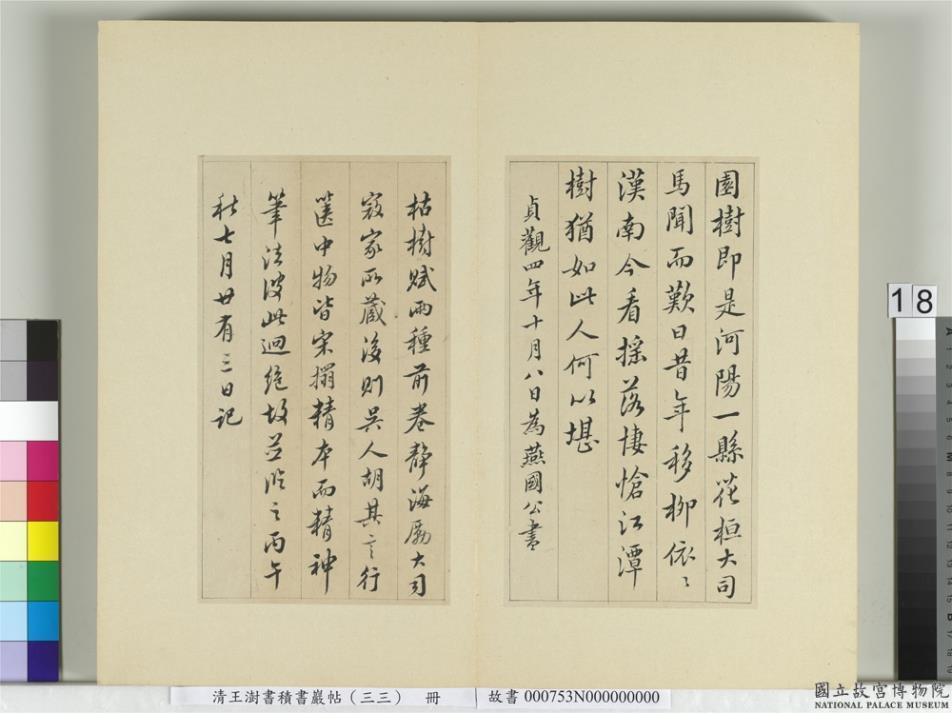 園樹即是河陽一縣花桓大司
馬聞而歎曰昔年移柳依〻
漢南今看搖落悽愴江潭
樹猶如此人何以堪
貞觀四年十月八日為燕國公書
枯樹賦兩種前卷靜海勵大司
寇家所藏後則吳人胡其之行
篋中物皆宋搨精本而精神
筆法彼此迥絕故並臨之丙午
秋七月廿有三日記
18
清王澍書積書巖帖（三三） 冊
故書 000753N000000000
國立故宮博物院
NATIONAL PALACE MUSEUM